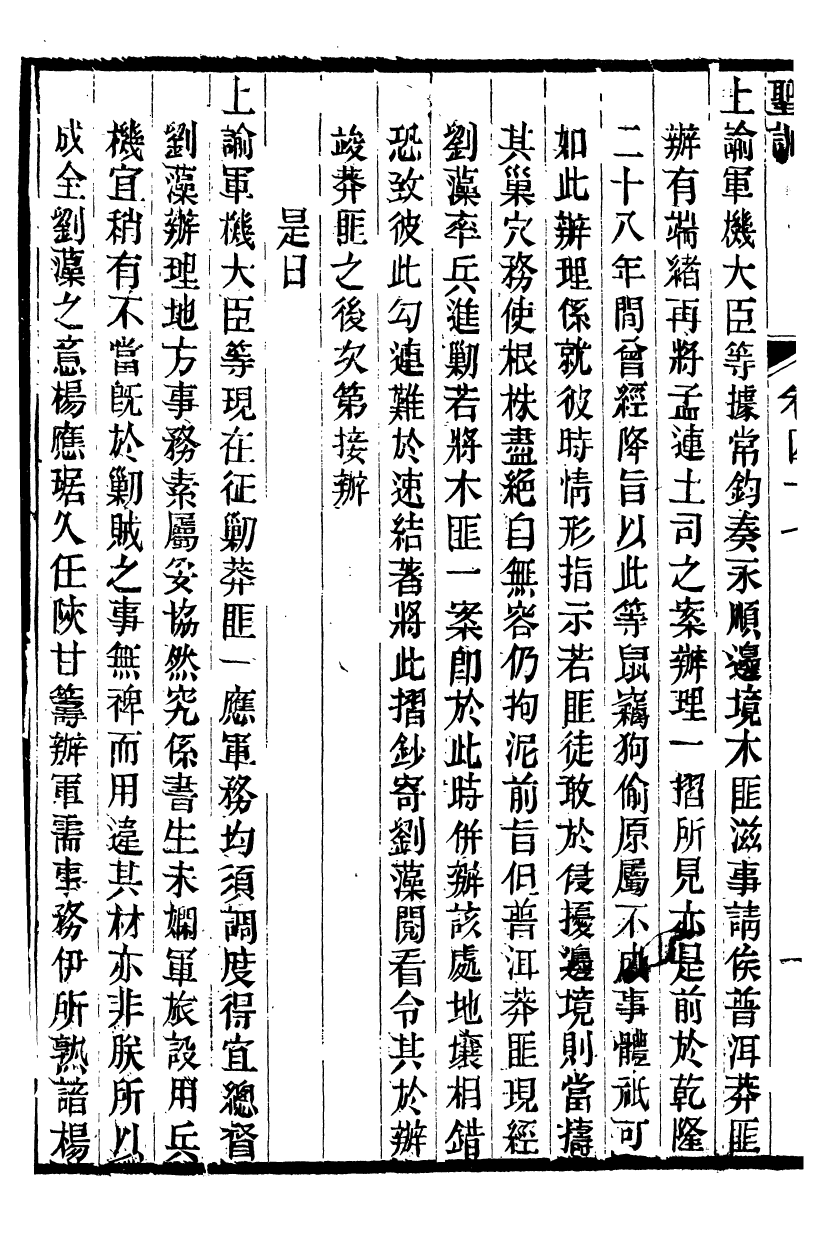 聖訓 卷四十一 一
上諭軍機大臣等據常鈞奏永順邊境木匪滋事請俟普洱莽匪
辦有端緒再將孟連土司之案辦理一摺所見亦是前於乾隆
二十八年間曾經降旨以此等鼠竊狗偷原屬不成事體祇可
如此辦理係就彼時情形指示若匪徒敢於侵擾邊境則當擣
其巢穴務使根株盡絕自無容仍拘泥前旨但普洱莽匪現經
劉藻率兵進勦若將木匪一案卽於此時併辦該處地壤相錯
恐致彼此勾連難於速結著將此摺鈔寄劉藻閱看令其於辦
竣莽匪之後次第接辦
是日
上諭軍機大臣等現在征勦莽匪一應軍務均須調度得宜總督
劉藻辦理地方事務素屬妥協然究係書生未嫻軍旅設用兵
機宜稍有不當旣於勦賊之事無裨而用違其材亦非朕所以
成全劉藻之意楊應琚久任陝甘籌辦軍需事務伊所熟諳楊